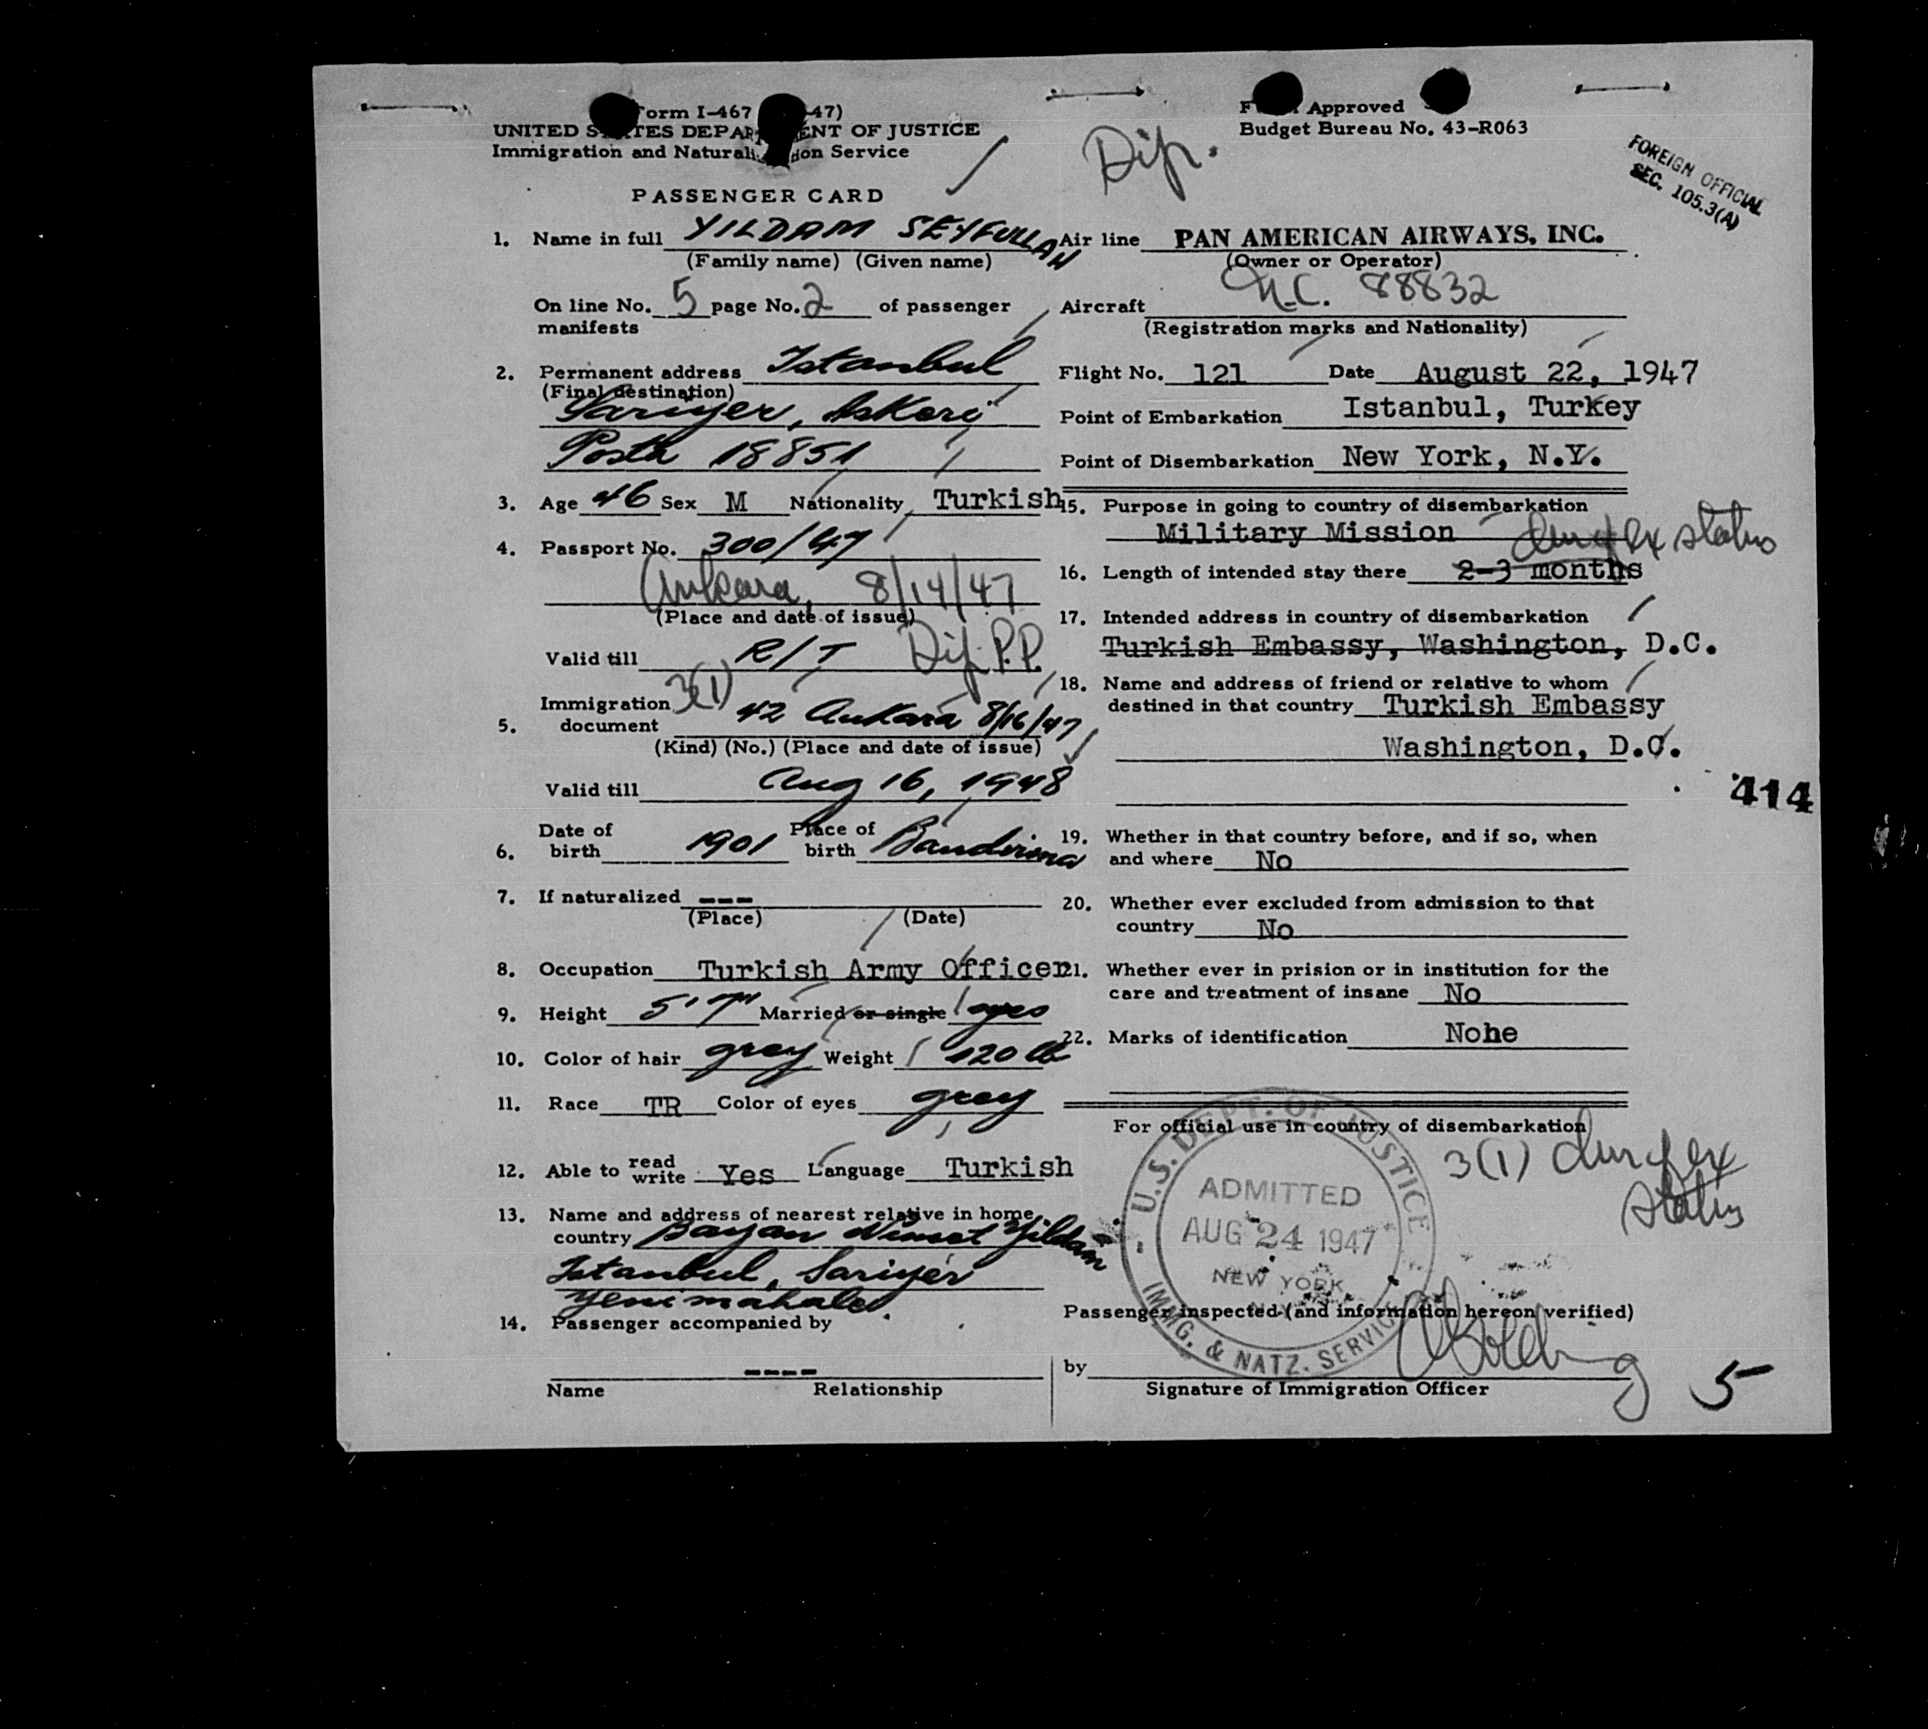 Form I-467 47)
UNITED STATES DEPARTMENT OF JUSTICE
Immigration and Naturalization Service
PASSENGER CARD
Dip.
Form Approved
Budget Bureau No. 43-R063
FOREIGN OFFICIAL
SEC. 105.3(A)
1. Name in full YILDAM SEYFULLAH
(Family name) (Given name)
On line No. 5 page No. 2 of passenger
manifests
2. Permanent address Istanbul
(Final destination)
Sariyer, Askeri
Posta 18851
3. Age 46 Sex M Nationality Turkish
4. Passport No. 300/47
Ankara, 8/14/47
(Place and date of issue)
Valid till R/T Dip. P.P.
Immigration 3(1)
5. document 42 Ankara 8/16/47
(Kind) (No.) (Place and date of issue)
Valid till Aug 16, 1948
6. Date of birth 1901 Place of birth Bandirma
7. If naturalized ---
(Place) (Date)
8. Occupation Turkish Army Officer
9. Height 5'7" Married or single yes
10. Color of hair grey Weight 120 lb
11. Race TR Color of eyes grey
12. Able to read write Yes Language Turkish
13. Name and address of nearest relative in home
country Bayan Nimet Yildam
Istanbul, Sariyer
Yenimahale.
14. Passenger accompanied by
----
Name Relationship
Air line PAN AMERICAN AIRWAYS, INC.
(Owner or Operator)
Aircraft N.C. 88832
(Registration marks and Nationality)
Flight No. 121 Date August 22, 1947
Point of Embarkation Istanbul, Turkey
Point of Disembarkation New York, N.Y.
15. Purpose in going to country of disembarkation
Military Mission
dur of ex status
16. Length of intended stay there 2-3 months
17. Intended address in country of disembarkation
Turkish Embassy, Washington, D.C.
18. Name and address of friend or relative to whom
destined in that country Turkish Embassy
Washington, D.C.
414
19. Whether in that country before, and if so, when
and where No
20. Whether ever excluded from admission to that
country No
21. Whether ever in prision or in institution for the
care and treatment of insane No
22. Marks of identification None
For official use in country of disembarkation
3(1) dur of ex
status
U.S. DEPT. OF JUSTICE
ADMITTED
AUG 24 1947
NEW YORK
IMMG. & NATZ. SERVICE
Passenger inspected (and information hereon verified)
by
Signature of Immigration Officer
5